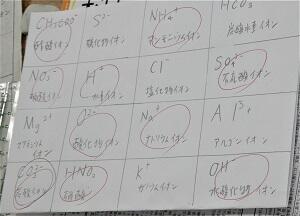 CH₃COO⁻ S²⁻ NH₄⁺ HCO₃
酢酸イオン 硫化物イオン アンモニウムイオン 炭酸水素イオン
NO₃⁻ H⁺ Cl⁻ SO₄²⁻
硝酸イオン 水素イオン 塩化物イオン 硫酸イオン
Mg²⁺ O²⁻ Na⁺ Al³⁺
マグネシウムイオン 酸化物イオン ナトリウムイオン アルゴンイオン
CO₃²⁻ HNO₃ K⁺ OH⁻
炭酸イオン 硝酸 カリウムイオン 水酸化物イオン